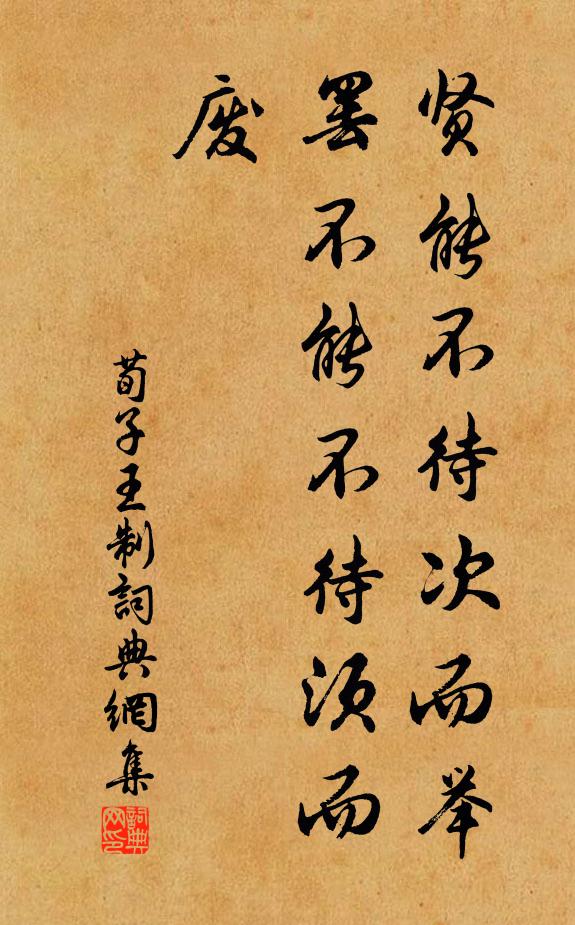 贤能不待次而举
罢不能不待须而
废
荀子王制詞典網集
詞典
网印